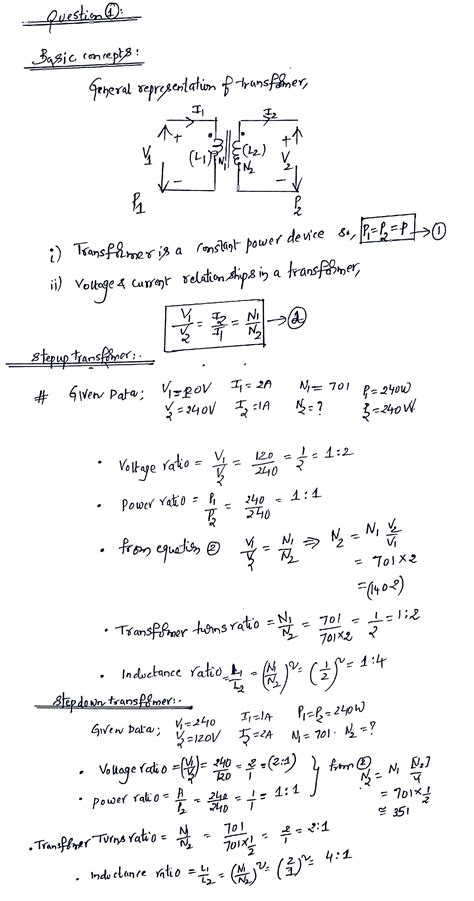 Question ①:
Basic concepts:
General representation of transformer,
I₁ I₂
+ • • +
V₁ (L₁) N₁ N₂ (L₂) V₂
− −
P₁ P₂
i) Transformer is a constant power device so, P₁=P₂=P → ①
ii) Voltage & current relationships in a transformer,
V₁/V₂ = I₂/I₁ = N₁/N₂ → ②
Stepup transformer:-
# Given Data; V₁=120V I₁=2A N₁=701 P₁=240W
V₂=240V I₂=1A N₂=? P₂=240W
• Voltage ratio = V₁/V₂ = 120/240 = 1/2 = 1:2
• Power ratio = P₁/P₂ = 240/240 = 1:1
• from equation ② V₁/V₂ = N₁/N₂ ⇒ N₂ = N₁ V₂/V₁
= 701×2
= (1402)
• Transformer turns ratio = N₁/N₂ = 701/701×2 = 1/2 = 1:2
• Inductance ratio = L₁/L₂ = (N₁/N₂)² = (1/2)² = 1:4
Stepdown transformer:-
Given Data; V₁=240 I₁=1A P₁=P₂=240W
V₂=120V I₂=2A N₁=701 N₂=?
• Voltage ratio = (V₁/V₂) = 240/120 = 2/1 = (2:1)
• power ratio = P₁/P₂ = 240/240 = 1/1 = 1:1
from ② N₂ = N₁ [V₂/V₁]
= 701×1/2
≅ 351
• Transformer Turns ratio = N₁/N₂ = 701/701×1/2 = 2/1 = 2:1
• Inductance ratio = L₁/L₂ = (N₁/N₂)² = (2/1)² = 4:1